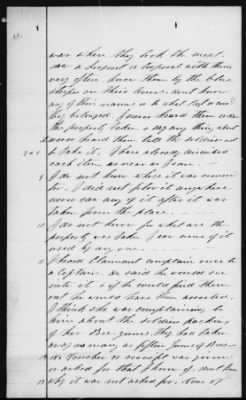 was where they took the meat.
saw a Sergeant or Corporal with them
very often. knew them by the blue
stripes on their arms. dont know
any of their names or to what Regt or comd
they belonged. I never heard them order
the property taken or say any thing about
never heard them tell the soldiers not
to take it. I have already described
each item as near as I can.
8 I do not know where it was carried
to. I did not follow it anywhere
never saw any of it after it was
taken from the place.
I do not know for what use the
property was taken. I saw none of it
used by any one.
I heard Claimant complain once to
a Captain. He said he would see
into it & if he could find them
out he would have them arrested.
I think she was complaining to
him about the soldiers
of her Bee-gums. They had taken
away as many as fifteen Gums of Bees
No Voucher or receipt was given
or asked for that I know of. dont know
why it was not asked for. None of